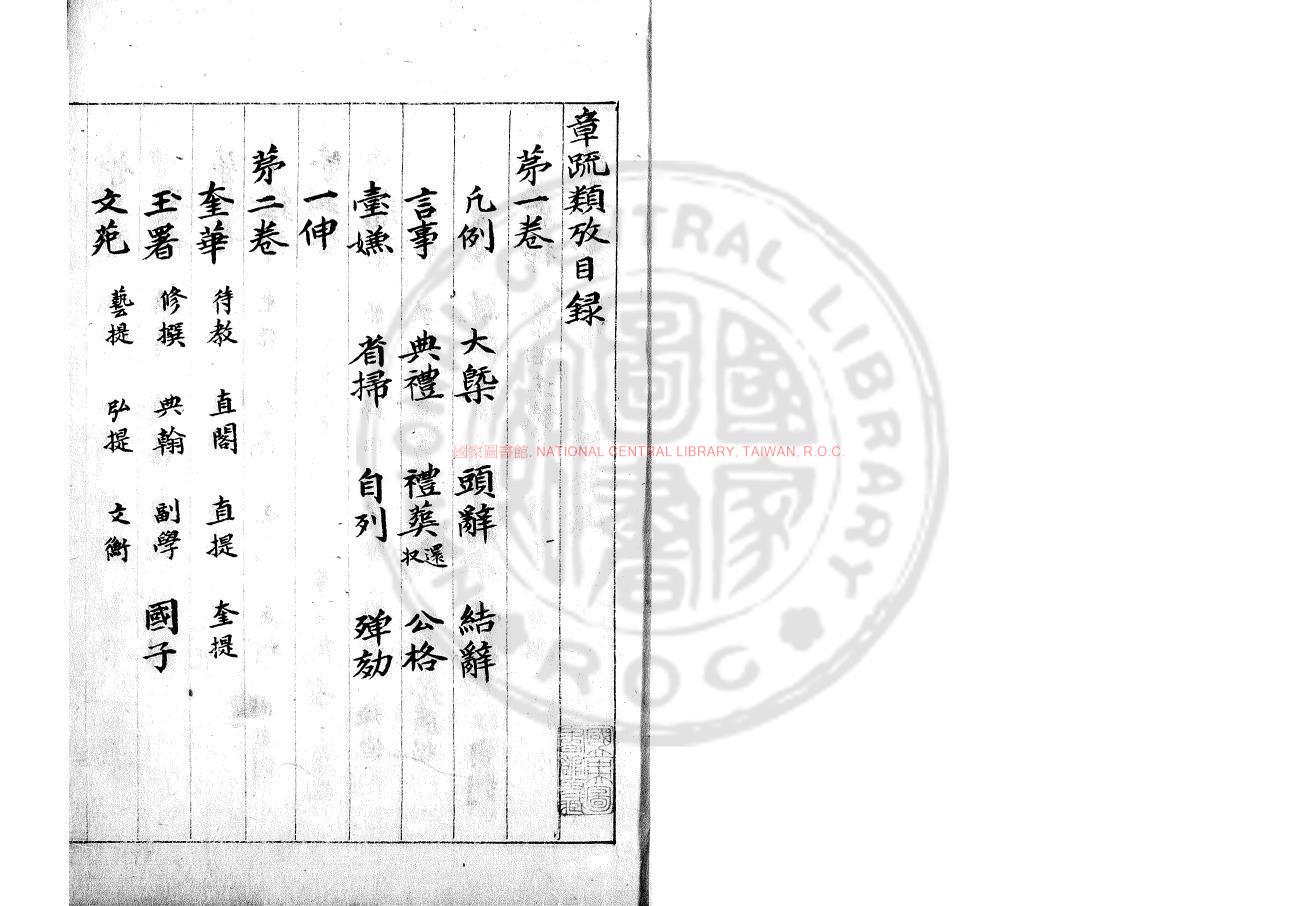 章疏類攷目録
苐一卷
凡例 大槩 頭辭 結辭
言事 典禮 禮葬還収 公格
臺嫌 省掃 自列 殫劾
一伸
苐二卷
奎華 待教 直閣 直提 奎提
玉署 修撰 典翰 副學 國子
文苑 藝提 弘提 文衡
國家圖書館, NATIONAL CENTRAL LIBRARY, TAIWAN, R.O.C.
NATIONAL CENTRAL LIBRARY
R.O.C
國家圖書